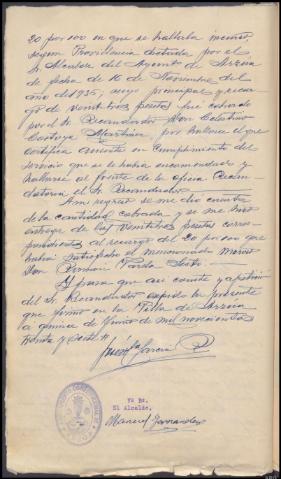 20 por 100 en que se hallaba incurso
según Providencia dictada por el
Sr. Alcalde del Ayunt. de Sarria
de fecha de 16 de Noviembre del
año del 1935; cuyo principal y recar
go de veintitres pesetas fué cobrado
por el Sr. Recaudador Don Celestino
Martinez por hallarse el que
certifica ausente en cumplimiento del
servicio que se le habia encomendado y
hallarse al frente de la oficina Recau
datoria el Sr. Recaudador.
A mi regreso se me dió cuenta
de la cantidad cobrada y se me hizo
entrega de las veintitres pesetas corres
pondientes al recargo del 20 por 100 que
habia satisfecho el mencionado
Don Pardo
Y para que asi conste y a petición
del Sr. Recaudador expido la presente
que firmo en la Villa de Sarria
a quince de Junio de mil novecientos
treinta y siete
García
Vº Bº.
El Alcalde,
Manuel Fernandez